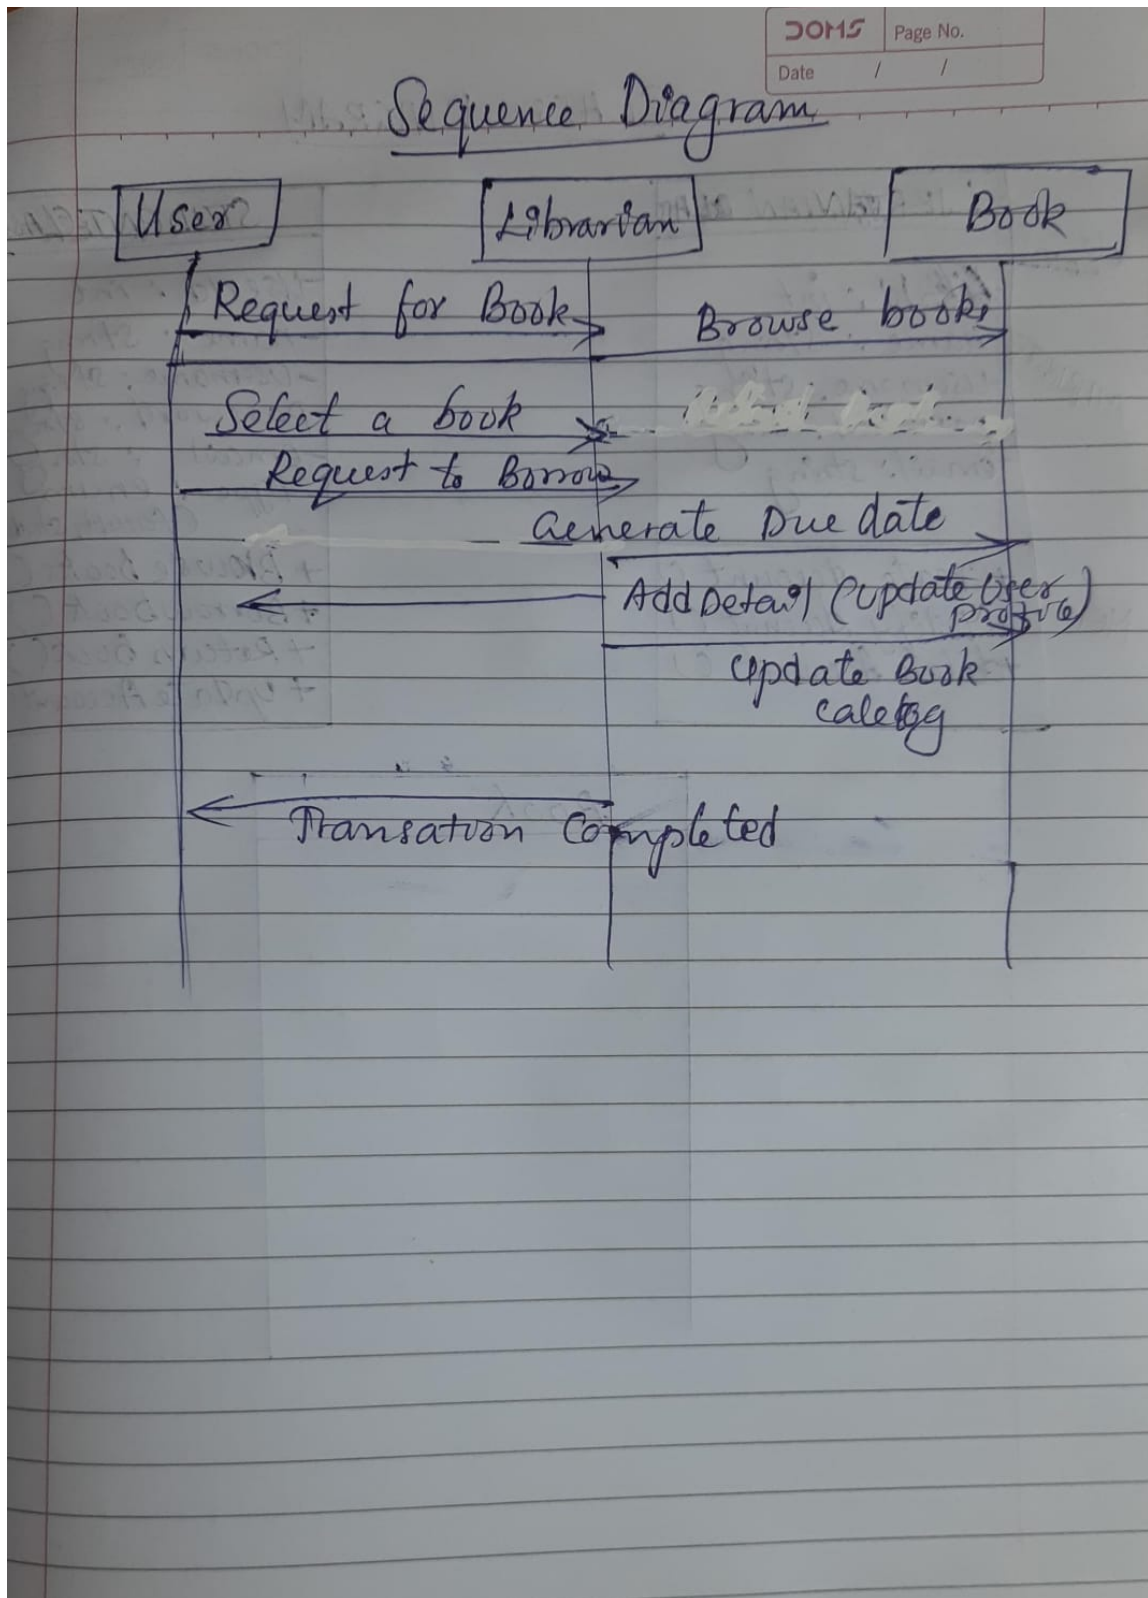 DOMS
Page No.
Date / /
Sequence Diagram
User
Librarian
Book
Request for Book
Browse books
Select a book
Request to Borrow
Generate Due date
Add Detail (Update User
profile)
Update Book
Transation Completed